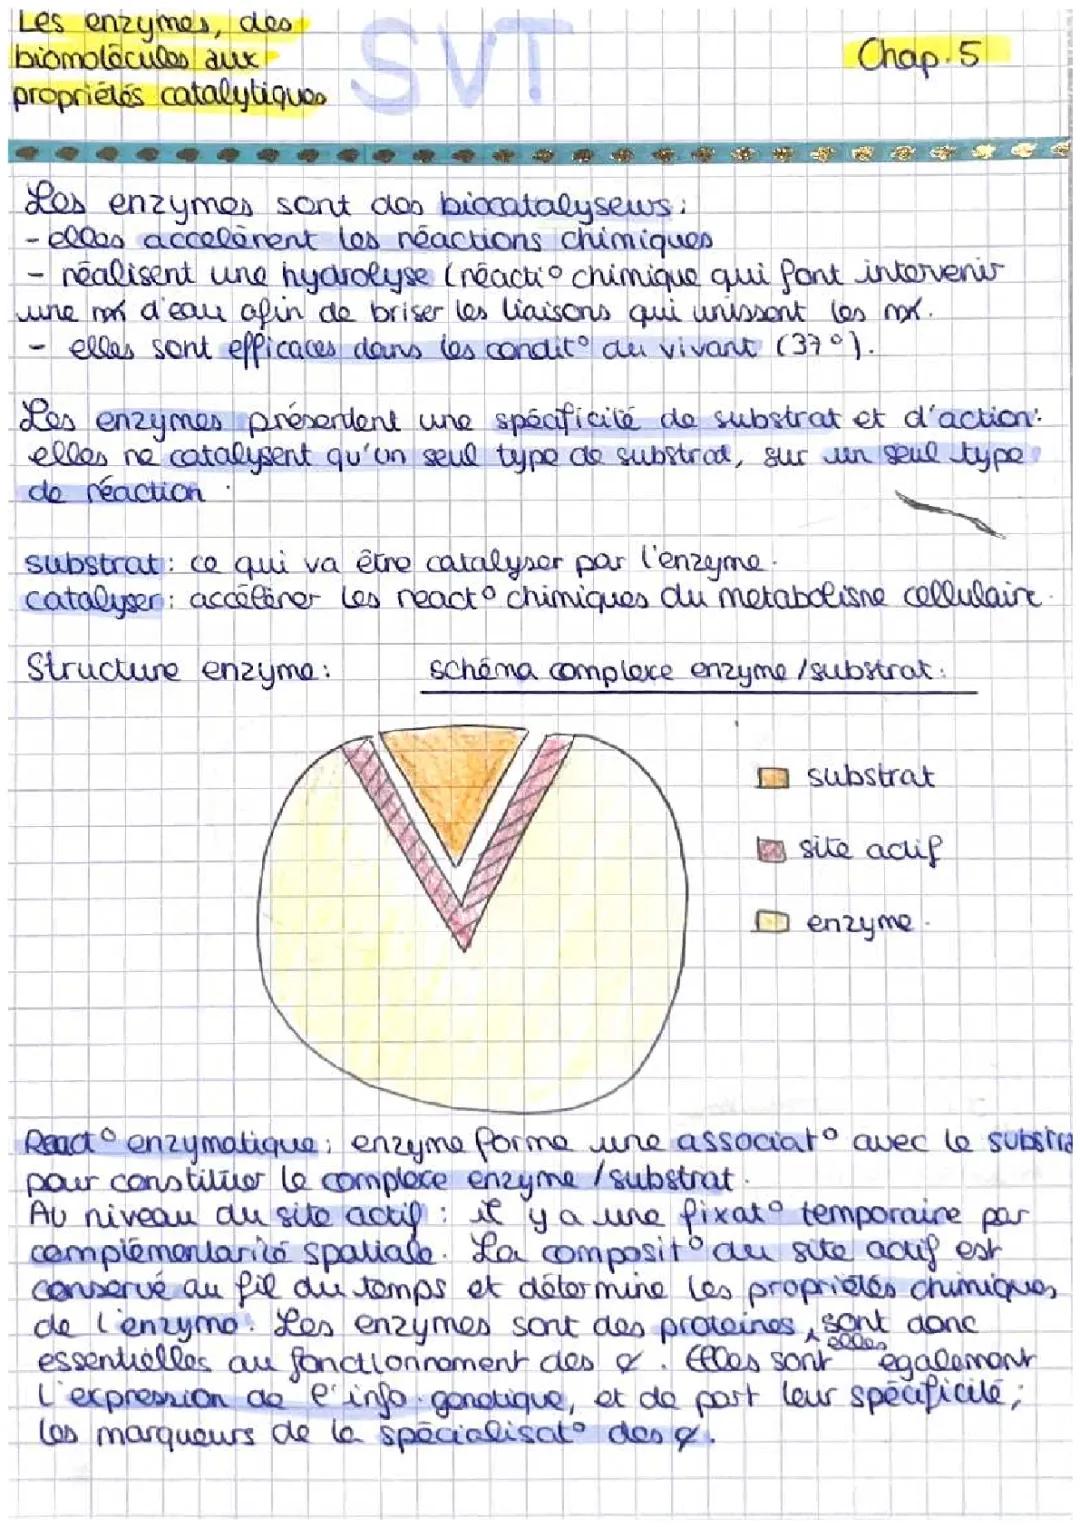 Les enzymes, des
biomolécules aux
propriétés catalytiques
SVT
Chap. 5
Les enzymes sont des biocatalyseurs :
- elles accelèrent les réactions chimiques
- réalisent une hydrolyse (réacti° chimique qui font intervenir
une mx d'eau afin de briser les liaisons qui unissent les mx.
- elles sont efficaces dans les condit° du vivant (37°).
Les enzymes présentent une spécificité de substrat et d'action :
elles ne catalysent qu'un seul type de substrat, sur un seul type
de réaction.
substrat : ce qui va être catalyser par l'enzyme.
catalyser : accélérer les react° chimiques du metabolisme cellulaire.
Structure enzyme :
schéma complexe enzyme / substrat :
substrat
site actif
enzyme.
React° enzymatique ; enzyme forme une associat° avec le substra
pour constituer le complexe enzyme / substrat.
Au niveau du site actif : il y a une fixat° temporaire par
complémentarité spatiale. La composit° du site actif est
conservé au fil du temps et détermine les propriétés chimiques
de l'enzyme. Les enzymes sont des proteines, elles sont donc
essentielles au fonctionnement des ¢. Elles sont egalement
l'expression de l'info. genetique, et de part leur spécificité ;
les marqueurs de la spécialisat° des ¢.